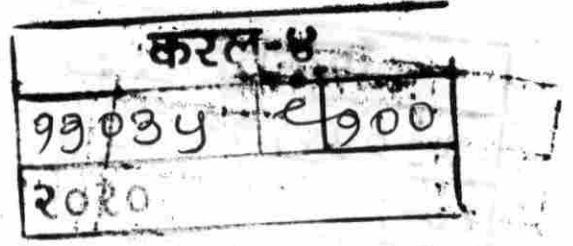 करल-४
११०३५ ९ १००
२०२०